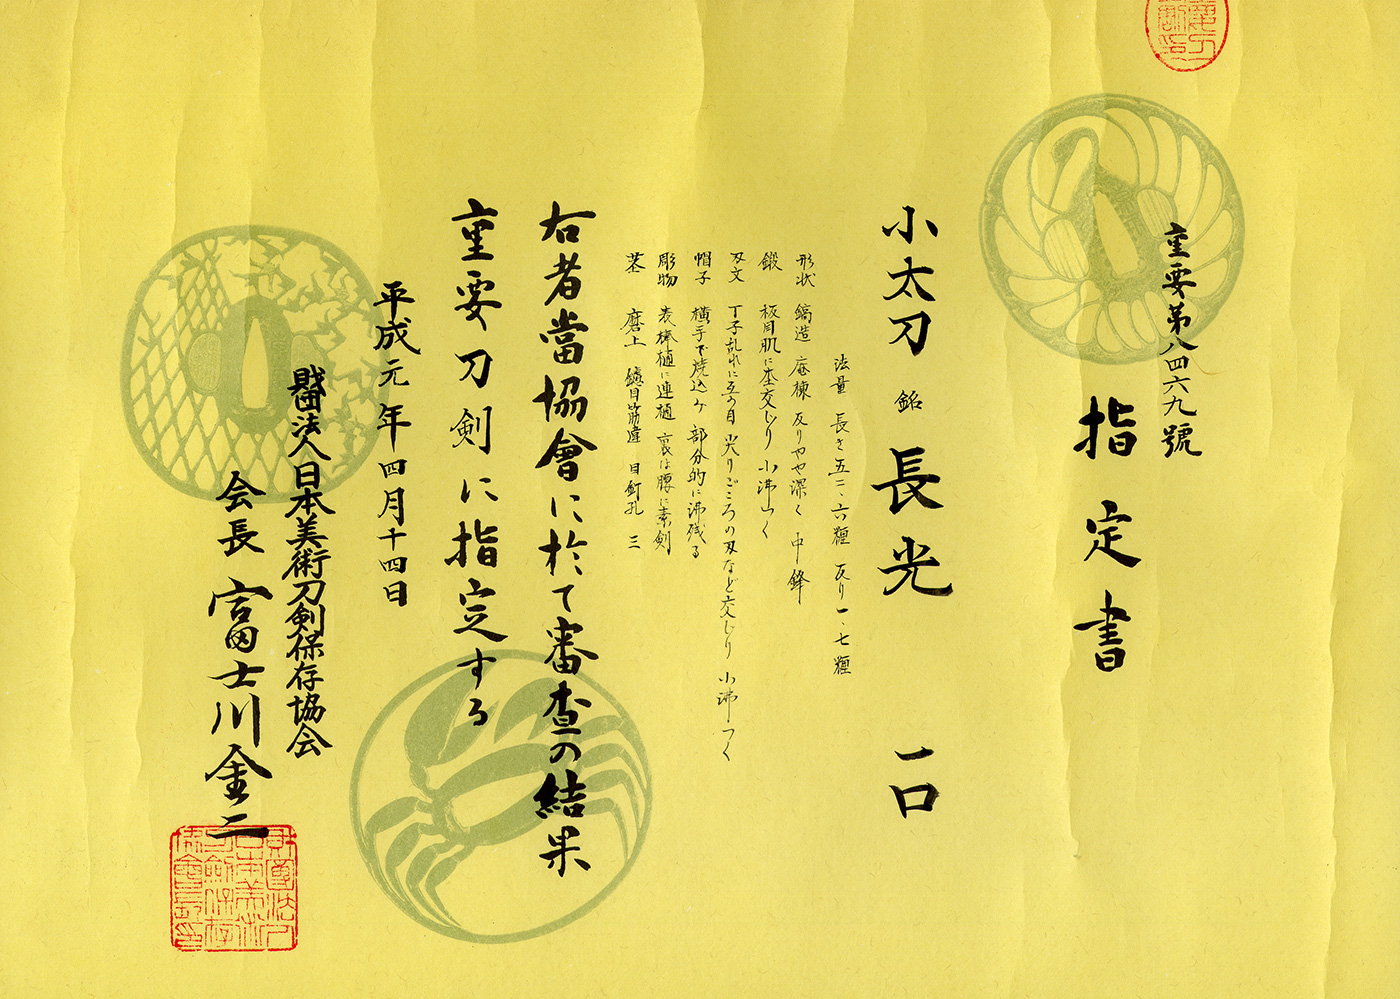 重要第八四六九號
指定書
小太刀 銘 長光 一口
法量 長さ五二、六糎 反り一、七糎
形状 鎬造 庵棟 反りやや深く 中鋒
鍛 板目肌に杢交じり 小沸つく
刃文 丁子乱れに互の目 尖りごころの刃など交じり 小沸つく
帽子 横手で焼込み 部分的に沸残る
彫物 表棒樋に連樋 裏は腰に素剣
茎 磨上 鑢目筋違 目釘孔 三
右者當協會に於て審査の結果
重要刀剣に指定する
平成元年四月十四日
財団法人日本美術刀剣保存協会
会長 富士川金二